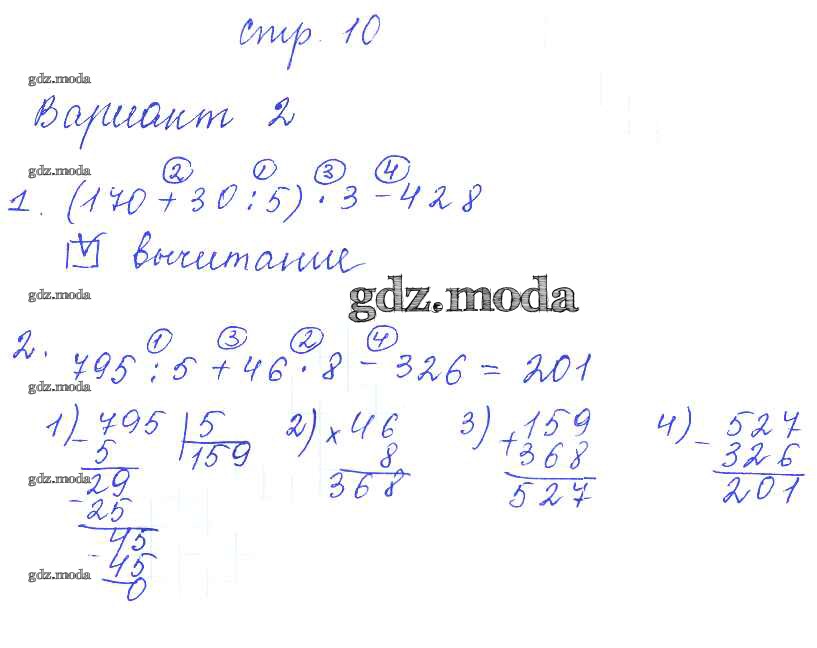 стр. 10
gdz.moda
Вариант 2
gdz.moda
2 1 3 4
1. (170 + 30 : 5) · 3 - 428
V вычитание
gdz.moda
gdz.moda
1 3 2 4
2. 795 : 5 + 46 · 8 - 326 = 201
gdz.moda
1) - 795 | 5 2) × 46 3) + 159 4) - 527
5 159 8 368 326
gdz.moda - 29 368 527 201
25
- 45
gdz.moda 45
0